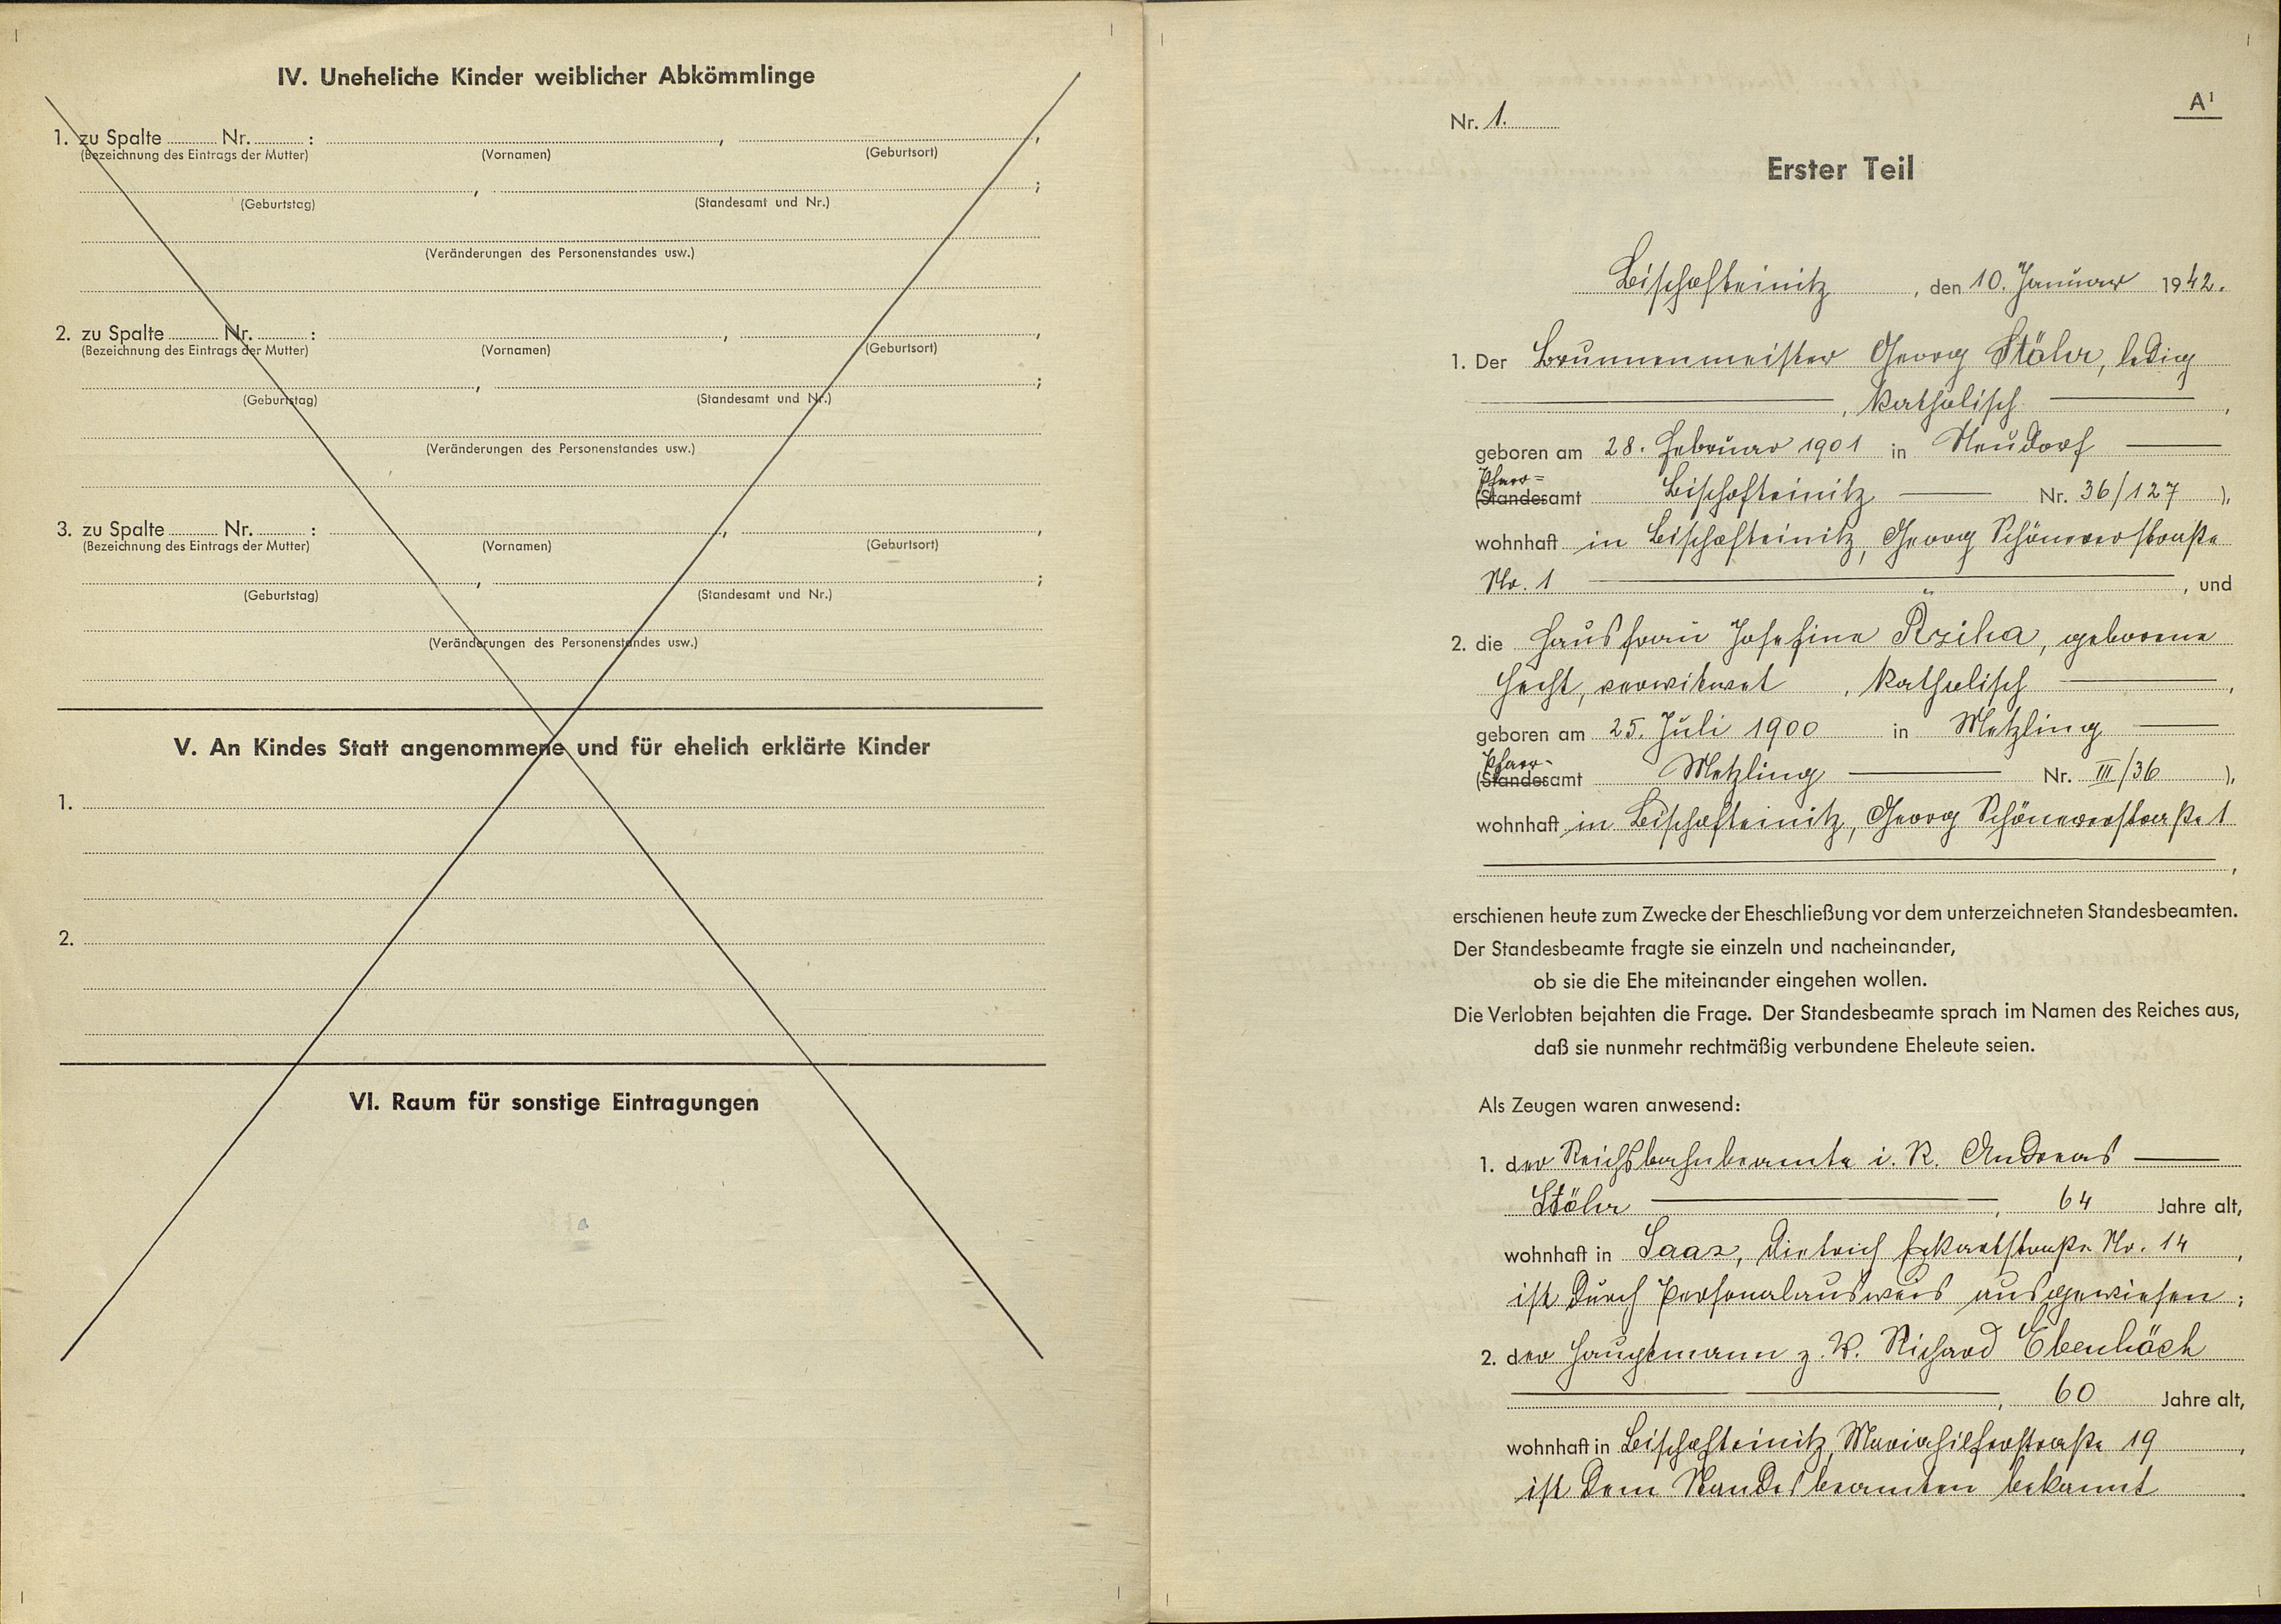 IV. Uneheliche Kinder weiblicher Abkömmlinge
1. zu Spalte ........ Nr. ........ : ........ , ........ ,
(Bezeichnung des Eintrags der Mutter) (Vornamen) (Geburtsort)
........ , ........ ;
(Geburtstag) (Standesamt und Nr.)
(Veränderungen des Personenstandes usw.)
2. zu Spalte ........ Nr. ........ : ........ , ........ ,
(Bezeichnung des Eintrags der Mutter) (Vornamen) (Geburtsort)
........ , ........ ;
(Geburtstag) (Standesamt und Nr.)
(Veränderungen des Personenstandes usw.)
3. zu Spalte ........ Nr. ........ : ........ , ........ ,
(Bezeichnung des Eintrags der Mutter) (Vornamen) (Geburtsort)
........ , ........ ;
(Geburtstag) (Standesamt und Nr.)
(Veränderungen des Personenstandes usw.)
V. An Kindes Statt angenommene und für ehelich erklärte Kinder
1.
2.
VI. Raum für sonstige Eintragungen
A¹
Nr. 1.
Erster Teil
Bischofteinitz , den 10. Januar 1942.
1. Der Brunnenmeister Georg Stöhr, ledig
, katholisch ,
geboren am 28. Februar 1901 in Neudorf
Pfarr=
(Standesamt Bischofteinitz Nr. 36/127 ),
wohnhaft in Bischofteinitz, Georg Schönererstraße
Nr. 1 , und
2. die Hausfrau Josefine Rziha, geborene
Hecht, verwitwet , katholisch ,
geboren am 25. Juli 1900 in Metzling
Pfarr-
(Standesamt Metzling Nr. III/36 ),
wohnhaft in Bischofteinitz, Georg Schönererstraße 1
,
erschienen heute zum Zwecke der Eheschließung vor dem unterzeichneten Standesbeamten.
Der Standesbeamte fragte sie einzeln und nacheinander,
ob sie die Ehe miteinander eingehen wollen.
Die Verlobten bejahten die Frage. Der Standesbeamte sprach im Namen des Reiches aus,
daß sie nunmehr rechtmäßig verbundene Eheleute seien.
Als Zeugen waren anwesend:
1. der Reichsbahnbeamte i. R. Andreas
Stöhr , 64 Jahre alt,
wohnhaft in Saaz, Dietrich Eckartstraße Nr. 14 ,
ist durch Personalausweis ausgewiesen ;
2. der Hauptmann z. V. Richard Ebenhöch
, 60 Jahre alt,
wohnhaft in Bischofteinitz, Mariahilferstraße 19 ,
ist dem Standesbeamten bekannt .